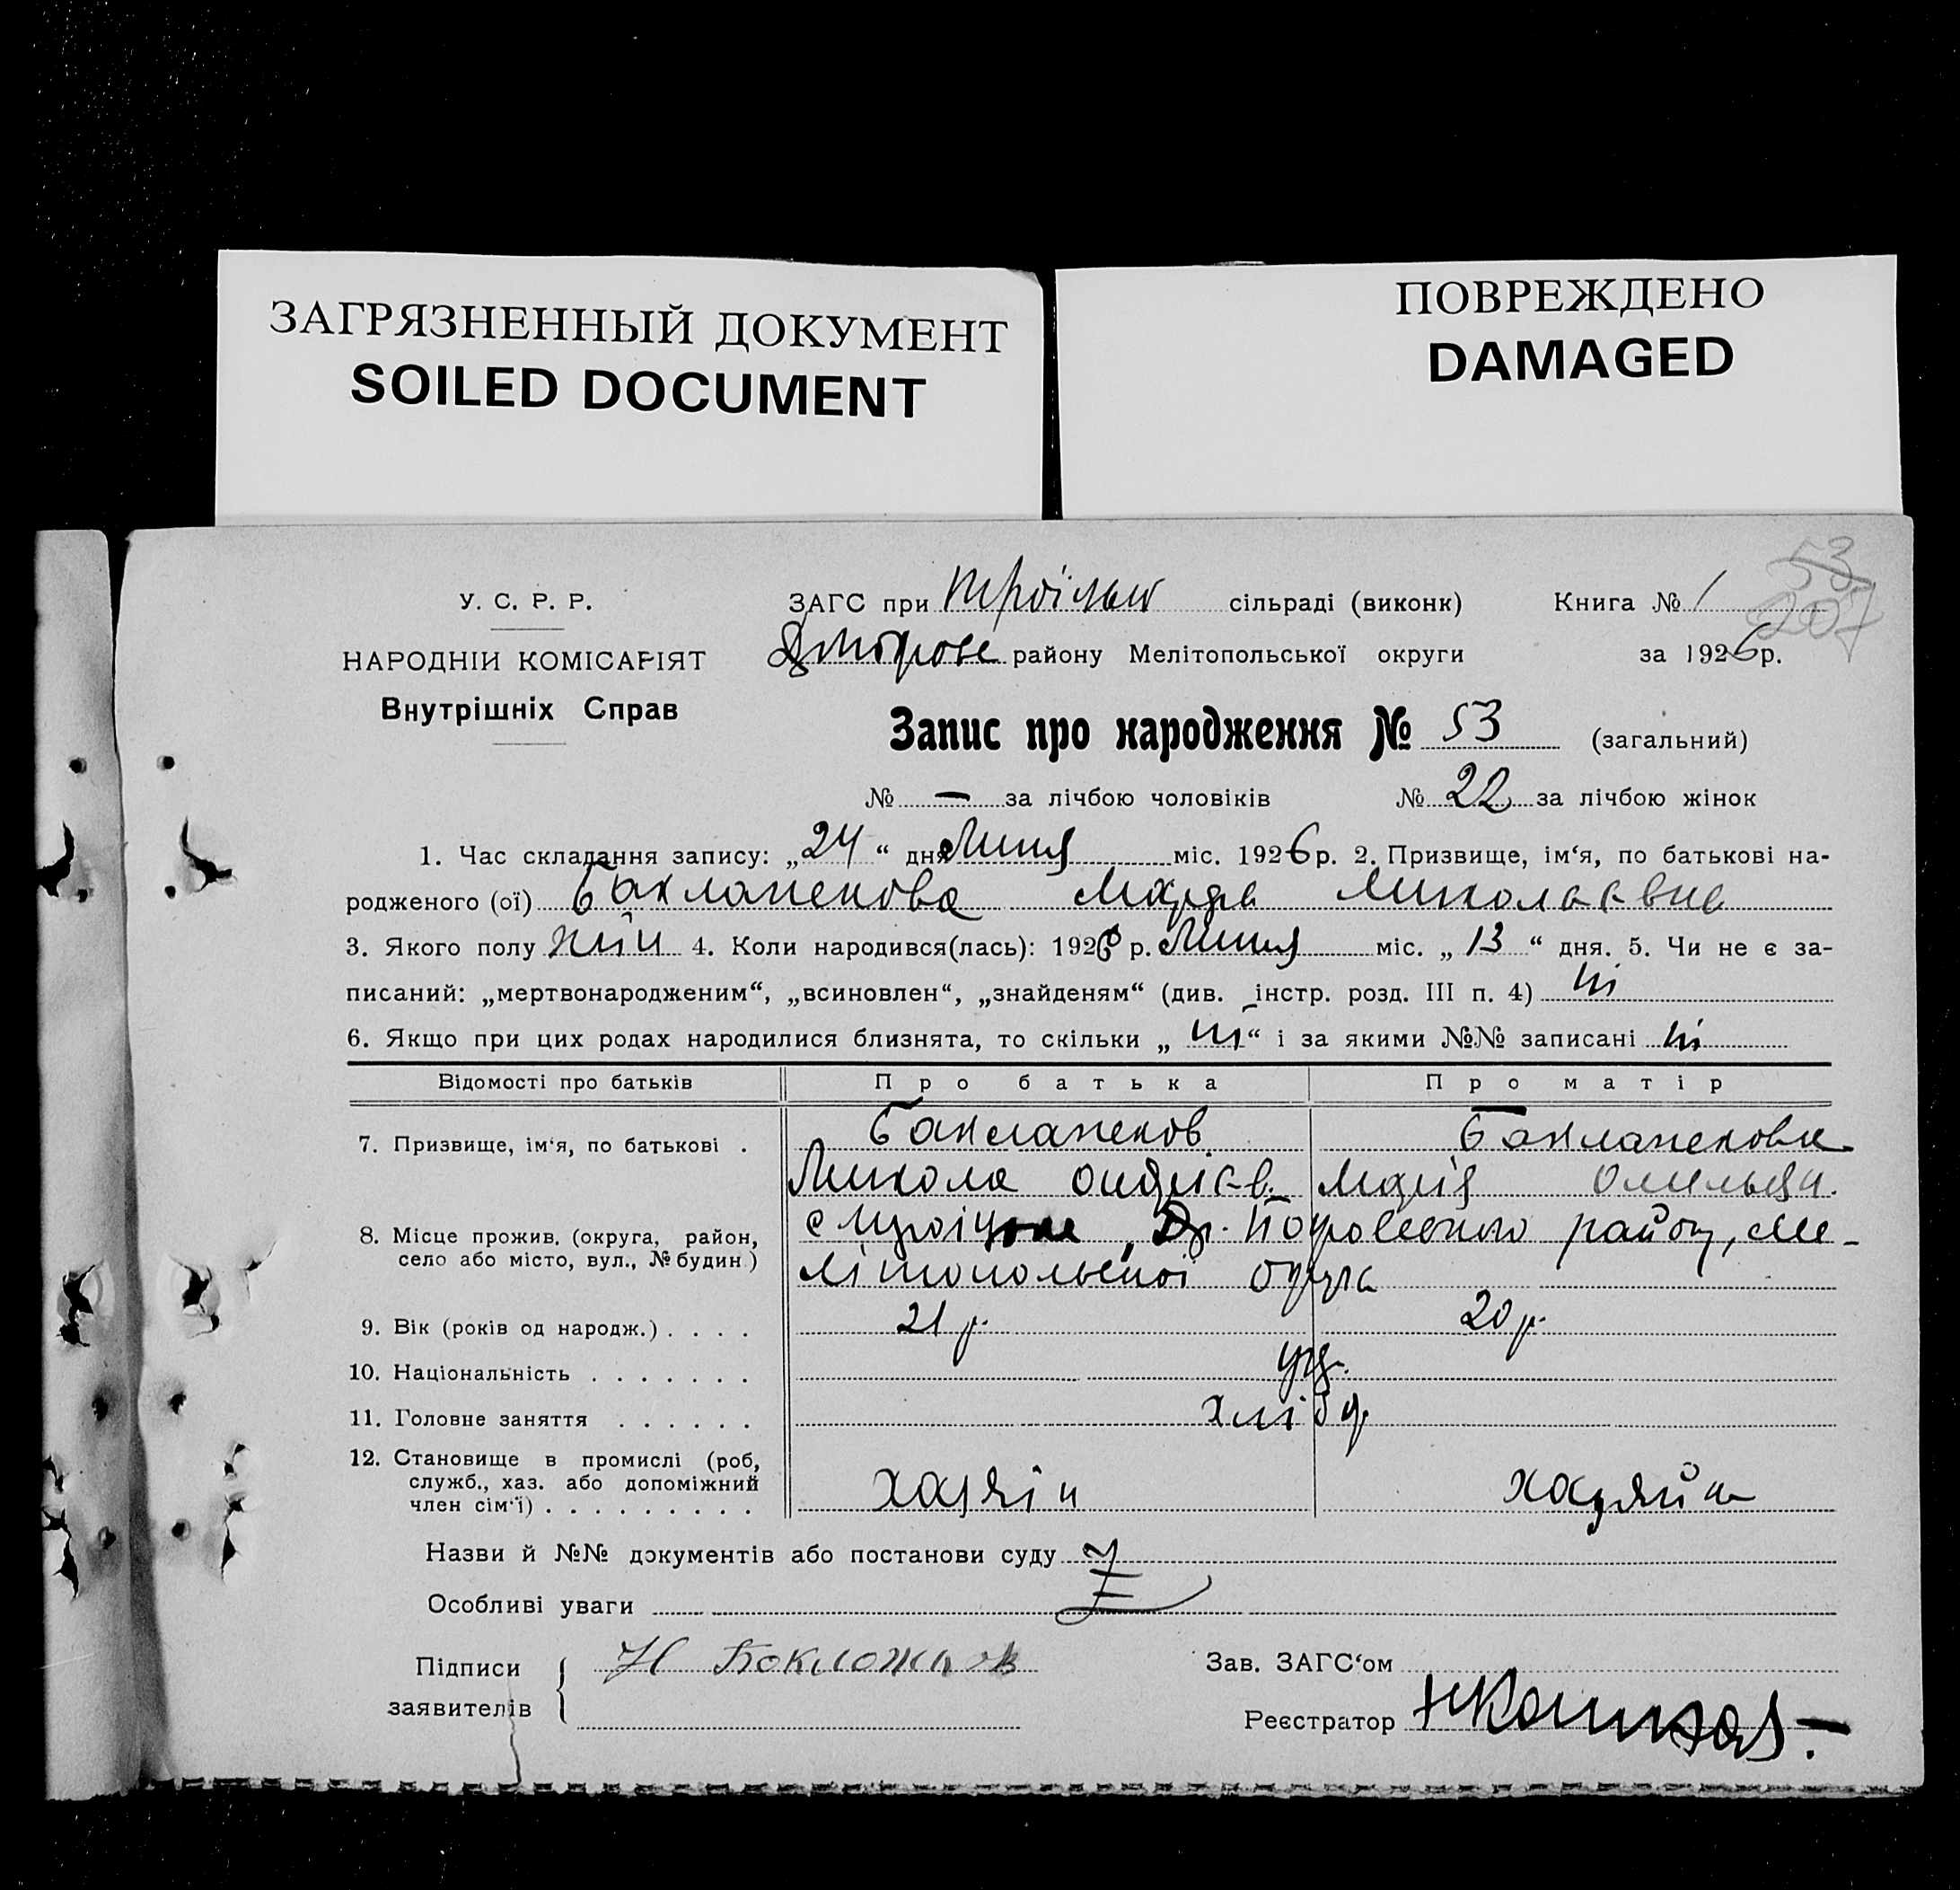 ЗАГРЯЗНЕННЫЙ ДОКУМЕНТ
SOILED DOCUMENT
ПОВРЕЖДЕНО
DAMAGED
53
207
У. С. Р. Р.
НАРОДНІЙ КОМІСАРІЯТ
Внутрішніх Справ
ЗАГС при сільраді (виконк) Книга № 1
району Мелітопольської округи за 1926 р.
Запис про народження № 53 (загальний)
№ — за лічбою чоловіків № 22 за лічбою жінок
1. Час складання запису: „24“ дня Липня міс. 1926 р. 2. Призвище, ім‘я, по батькові на-
родженого (ої) Баклаженова Миколаевна
3. Якого полу жін 4. Коли народився(лась): 1926 р. Липня міс. „13“ дня. 5. Чи не є за-
писаний: „мертвонародженим“, „всиновлен“, „знайденям“ (див. інстр. розд. III п. 4) ні
6. Якщо при цих родах народилися близнята, то скільки „ні“ і за якими №№ записані ні
Відомості про батьків Про батька Про матір
7. Призвище, ім‘я, по батькові . Баклаженов Баклаженова
Микола Андрієв. Марія Омельян.
8. Місце прожив. (округа, район, район, Ме-
село або місто, вул., № будин.) літопольської округа
9. Вік (років од народж.) . . . . 21 р. 20 р.
10. Національність . . . . . . . укр.
11. Головне заняття . . . . . . хлібор.
12. Становище в промислі (роб,
служб., хаз. або допоміжний
член сім‘ї) . . . . . . . . . хазяїн хазяйка
Назви й №№ документів або постанови суду
Особливі уваги
Підписи Н Бокложенов Зав. ЗАГС‘ом
заявителів Реєстратор